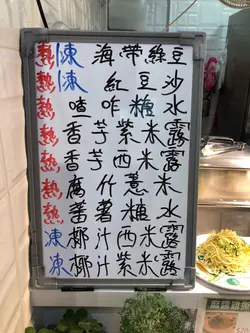 熱凍海帶綠豆
熱凍紅豆沙
熱喳咋糖水
熱香芋紫米露
熱香芋西米露
熱腐竹薏米
熱蕃薯糖水
凍椰汁西米露
凍椰汁紫米露